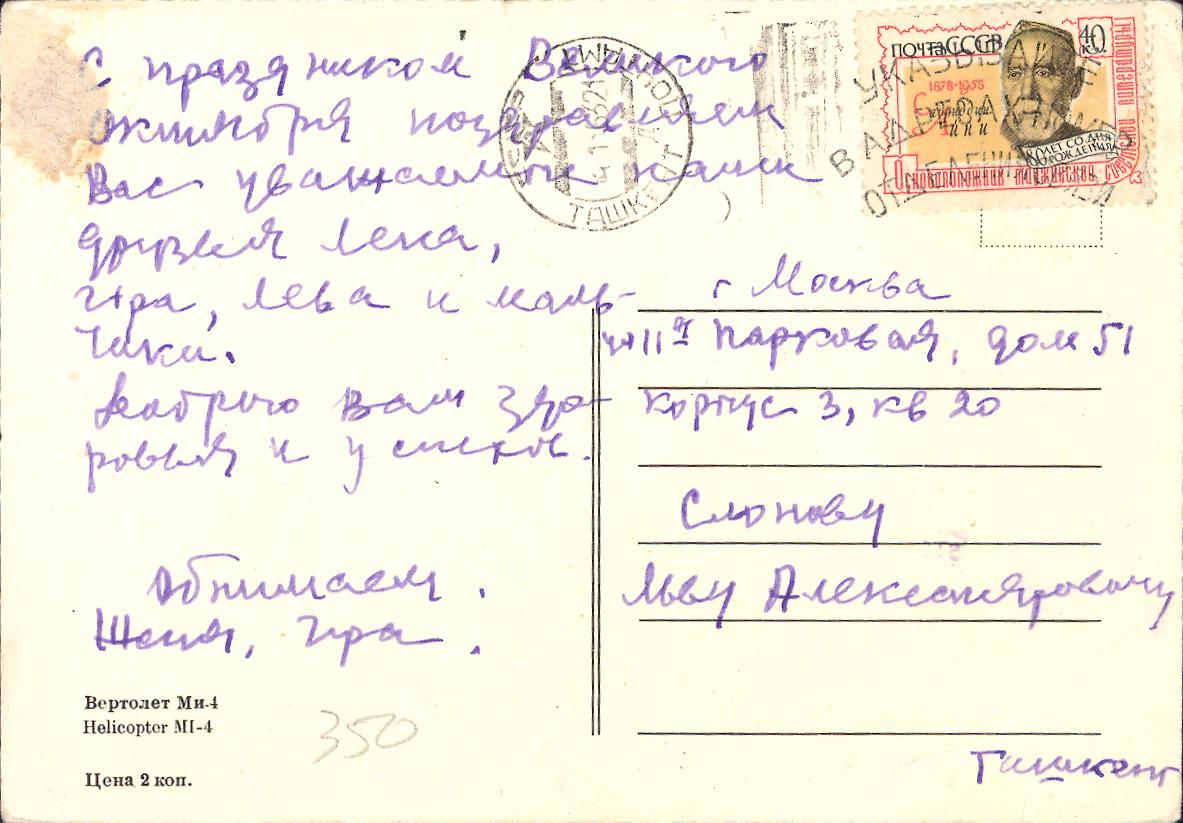 С праздником Великого
Октября поздравляем
Вас уважаемые наши
друзья Лена,
Ира, Лева и маль-
чики.
Доброго Вам здо-
ровья и успехов.
Обнимаем.
Женя, Ира.
Вертолет Ми-4
Helicopter MI-4
350
Цена 2 коп.
ПОЧТА СССР
40 к.
1878-1958
80 ЛЕТ СО ДНЯ РОЖДЕНИЯ
Основоположник таджикской советской литературы
УКАЗЫВАЙТЕ
В АДРЕСАХ НОМЕР
ОТДЕЛЕНИЯ СВЯЗИ
ТАШКЕНТ
г Москва
11я Парковая, дом 51
корпус 3, кв 20
Слонову
Льву Александровичу
Ташкент